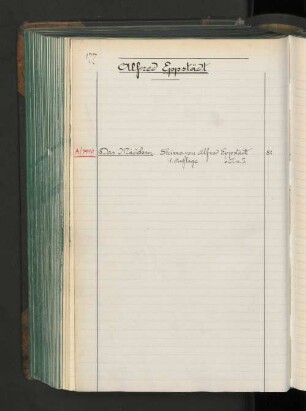 177
Alfred Eppstädt
Das Mädchen Skizze von Alfred Eppstädt 8°
1. Auflage